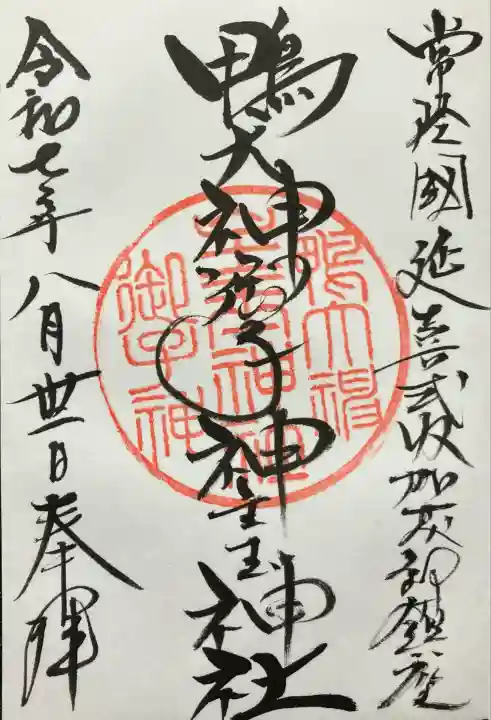 常陸國延喜式内加茂部鎮座
鴨大神御子神主玉神社
令和七年八月卅一日奉拝
鴨大神
御子神
主玉神社